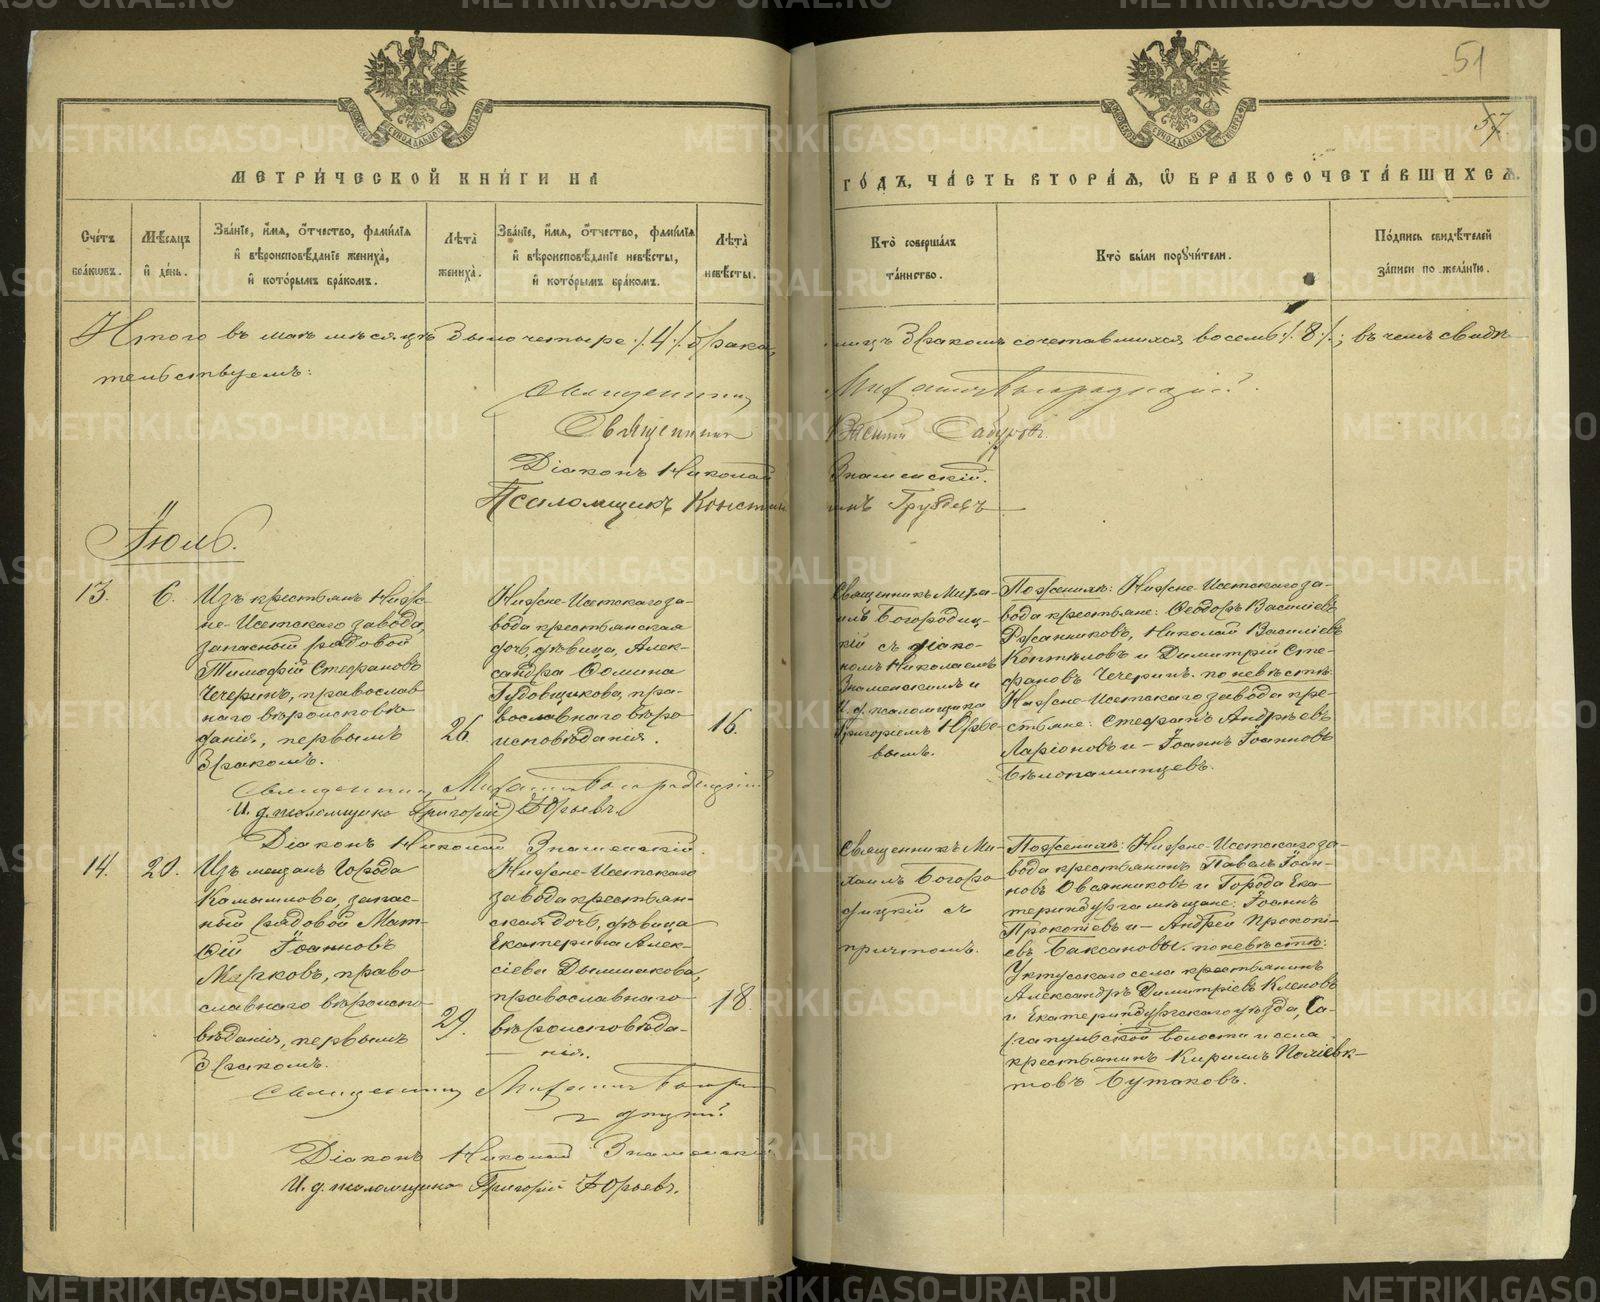 51
57.
МЕТРИ́ЧЕСКОЙ КНИ́ГИ НА
ГО́ДЪ, ЧА́СТЬ ВТОРА́Ѧ, Ѡ҆ БРАКОСОЧЕТА́ВШИХСѦ.
Сче́тъ бра́кѡвъ.
Мѣ́сѧцъ и҆ де́нь.
Зва́нїе, и҆́мѧ, ѻ҆́тчество, фами́лїѧ и҆ вѣроисповѣ́данїе жениха̀, и҆ кото́рымъ бра́комъ.
Лѣ́та жениха̀.
Зва́нїе, и҆́мѧ, ѻ҆́тчество, фами́лїѧ и҆ вѣроисповѣ́данїе невѣ́сты, и҆ кото́рымъ бра́комъ.
Лѣ́та невѣ́сты.
Кто̀ соверша́лъ та́инство.
Кто̀ бы́ли порꙋчи́тели.
По́дпись свидѣ́телей за́писи по жела́нїю.
Итого въ маѣ мѣсяцѣ было четыре /.4/. брака,
лицъ бракомъ сочетавшихся восемь /.8./; въ чемъ свидѣ-
тельствуемъ:
Священникъ Михаилъ Богородицкій.
Священникъ Сабуровъ.
Діаконъ Николай Знаменскій.
Псаломщикъ Констан
инъ Груздевъ
Іюль.
13.
6.
Изъ крестьянъ Ниж-
не-Исетскаго завода,
запасный рядовой
Тимофій Стефановъ
Чечеринъ, православ
наго вѣроисповѣ-
данія, первымъ
бракомъ.
26.
Нижне-Исетскаго за-
вода крестьянская
дочь, дѣвица, Алек-
сандра Ѳомина
Гудовщикова, пра-
вославнаго вѣро
исповѣданія.
16.
Священникъ Миха-
илъ Богородиц-
кій съ діако-
номъ Николаемъ
Знаменскимъ и
И. д. псаломщика
Григоріемъ Юрье-
вымъ.
По женихѣ: Нижне-Исетскаго за-
вода крестьяне: Ѳеодоръ Васильевъ
Ржанниковъ, Николай Васильевъ
Коптѣловъ и Димитрій Сте-
фановъ Чечеринъ. по невѣстѣ:
Нижне-Исетскаго завода кре-
стьяне: Стефанъ Андреевъ
Ларіоновъ и – Іоаннъ Іоанновъ
Бѣлопашинцевъ.
Священникъ Михаилъ Богородицкій
И. д. псаломщика Григорій Юрьевъ.
Діаконъ Николай Знаменскій.
14.
20.
Изъ мещанъ города
Камышлова, запас-
ный рядовой Мат-
ѳій Іоанновъ
Марковъ, право
славнаго вѣроиспо-
вѣданія, первымъ
бракомъ.
29.
Нижне-Исетскаго
завода крестьян-
ская дочь, дѣвица
Екатерина Алек-
сіева Дымшакова,
православнаго
вѣроисповѣда-
нія.
18
Священникъ Ми-
хаилъ Богоро-
дицкій съ
причтомъ.
По женихѣ: Нижне-Исетскаго за-
вода крестьянинъ Павелъ Іоан-
новъ Овсянниковъ и города Ека-
теринбурга мѣщане: Іоаннъ
Прокопіевъ и – Андрей Прокопі-
евъ Баксановы. по невѣстѣ:
Уктусскаго села крестьянинъ
Александръ Димитріевъ Кленовъ
и Екатеринбургскаго уѣзда, Са-
рапульской волости и села
крестьянинъ Кириллъ Поліевк-
товъ Бутаковъ.
Священникъ Михаилъ Богоро
дицкій.
Діаконъ Николай Знаменскій
И. д. псаломщика Григорій Юрьевъ.
METRIKI.GASO-URAL.RU